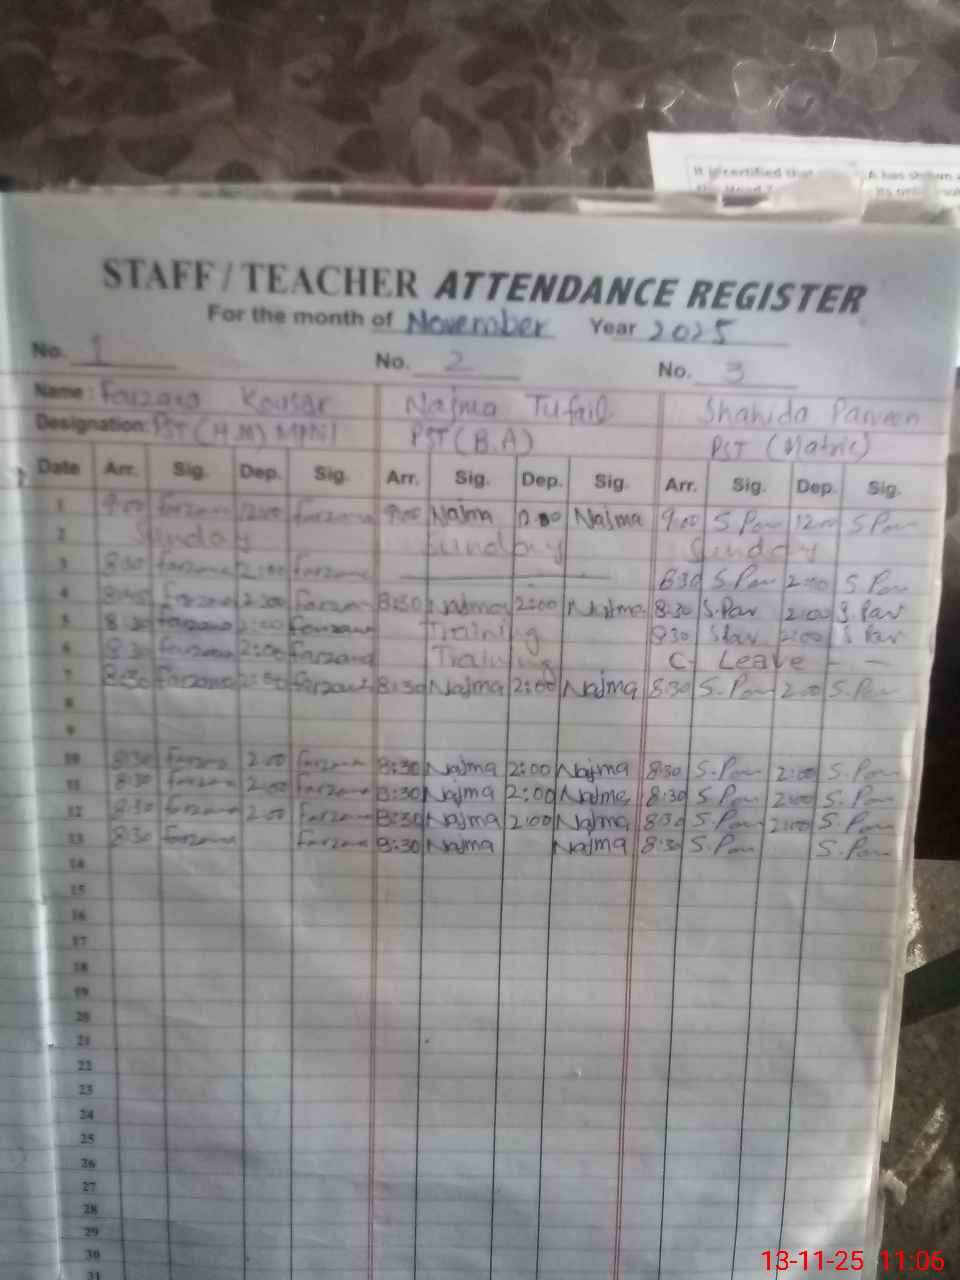 It is certified that
A has shown
STAFF / TEACHER ATTENDANCE REGISTER
For the month of November Year 2025
No. 1 No. 2 No. 3
Name: Farzana Kousar Najma Tufail Shahida Parveen
Designation: PST (H.M) MPhil PST (B.A) PST (Matric)
Date Arr. Sig. Dep. Sig. Arr. Sig. Dep. Sig. Arr. Sig. Dep. Sig.
1 9:00 farzana 12:00 farzana 9:00 Najma Najma 9:00 S.Par 12:00 S.Par
2 Sunday Sunday Sunday
3 8:30 farzana 2:00 farzana 8:30 S.Par 2:00 S.Par
4 8:45 farzana 2:00 farzana 8:30 Najma 2:00 Najma 8:30 S.Par 2:00 S.Par
5 8:30 farzana 2:00 farzana Training 8:30 S.Par 2:00 S.Par
6 8:30 farzana 2:00 farzana Training C- Leave - -
7 8:30 farzana 2:00 farzana 8:30 Najma 2:00 Najma 8:30 S.Par 2:00 S.Par
8
9
10 8:30 farzana 2:00 farzana 8:30 Najma 2:00 Najma 8:30 S.Par 2:00 S.Par
11 8:30 farzana 2:00 farzana 8:30 Najma 2:00 Najma 8:30 S.Par 2:00 S.Par
12 8:30 farzana 2:00 farzana 8:30 Najma 2:00 Najma 8:30 S.Par 2:00 S.Par
13 8:30 farzana farzana 8:30 Najma Najma 8:30 S.Par S.Par
14
15
16
17
18
19
20
21
22
23
24
25
26
27
28
29
30
31
13-11-25 11:06